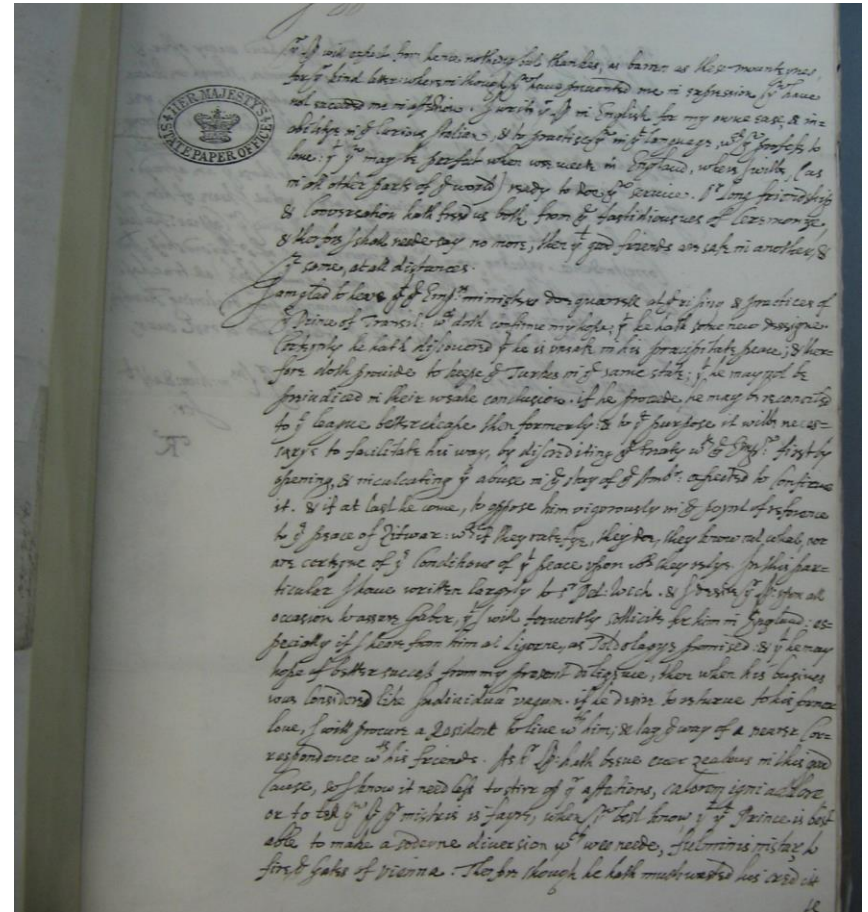 HER MAJESTY'S STATE PAPER OFFICE
yʳ Lp will expect from hence nothing but thankes, as barren as these mountaynes,
for yʳ kind letter: wherein though yᵘ have prevented me in expression yᵘ have
not exceeded me in affection. I write yʳ Lp in English for my owne ease, & in=
abilitye in yᵉ Italian, & to practise yᵘ in yᵉ language, wᶜʰ yᵘ professe to
love: yᵗ yᵘ may be perfect when wee meete in England, where I wilbe, (as
in all other parts of yᵉ world) ready to doe yᵘ service. Oʳ long friendship
& Conversation hath freed us both from yᵉ fastidiousnes of Ceremonye,
& therfore I shall neede say no more, then yᵗ good friends are safe in another, &
yᵉ same, at all distances.
I am glad to heare yᵗ yᵉ Empʳˢ ministers doe quarrell at yᵉ & practices of
yᵉ Prince of Transil: wᶜʰ doth confirme my hope, yᵗ he hath some new designe
Certenly he hath discovered yᵗ he is unsafe in his precipitate peace; & ther=
fore doth provide to keepe yᵉ Turkes in yᵉ same state; yᵗ he may not be
prejudiced in their weake conclusion. if he procede, he may be reconciled
to yᵉ league better cheape then formerly: & to yᵗ purpose it wilbe neces=
sarye to facilitate his way, by discrediting yᵉ treaty wᵗʰ yᵉ Empʳ: first by
opening, & inculcating yᵉ abuse in yᵉ stay of yᵉ Ambʳ: expected to confirme
it. & if at last he come, to oppose him vigorously in yᵉ poynt of reference
to yᵉ peace of Zitwar: wᶜʰ if they ratefye, they doe, they know not what, nor
are certeyne of yᵉ Conditions of yᵗ peace upon wᶜʰ they relye. In this par=
ticular I have written largely to Sʳ Pet: Wich. & I desire yʳ Lp: upon all
occasion to assure Gabor, yᵗ I will fervently sollicite for him in England: es=
pecially if I heare from him at Ligorne, as Toldolagye promised: & yᵗ he may
hope of better succes from my present diligence, then when his busines
was Considered like Individuũ vagum. if he desire to returne to his former
love, I will procure a Resident to live wᵗʰ him; & lay yᵉ way of a nearer Cor=
respondence wᵗʰ his friends. As yʳ Lp: hath beene ever zealous in this good
Cause, so I know it needeless to stirr up yʳ affections, calorem igni addere
or to tell yʳ Lp yʳ mistris is fayre, when yᵘ best know yᵗ yᵗ Prince is best
able to make a moderne diversion wᶜʰ wee neede, fulmin ministrar, to
fire yᵉ Gates of Vienna. Therfore though he hath much wasted his credit